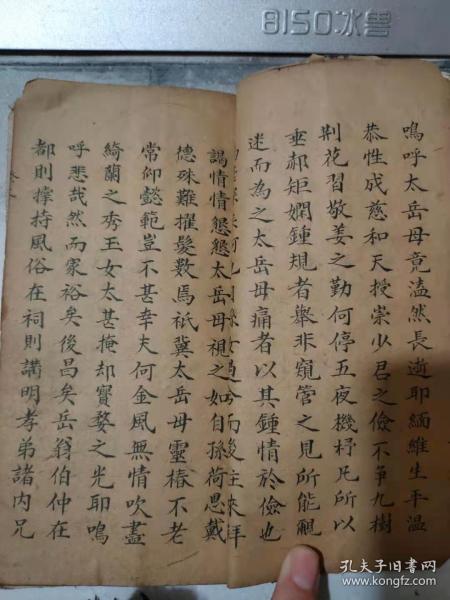 8150冰兽
嗚呼太岳母竟溘然長逝耶緬維生平溫
恭性成慈和天授崇少君之儉不爭九樹
荆花習敬姜之勤何停五夜機杼凡所以
垂郝矩嫻鍾規者舉非窺管之見所能覼
迷而為之太岳母痛者以其鍾情於儉也
謁情情懇懇太岳母視之如自孫荷恩戴
德殊難擢髮數焉祇冀太岳母靈椿不老
常仰懿範豈不甚幸夫何金風無情吹盡
綺蘭之秀玉女太甚掩却寶婺之光耶嗚
呼悲哉然而家裕矣後昌矣岳翁伯仲在
都則撐持風俗在祠則講明孝弟諸内兄
孔夫子旧書网
www.kongfz.com